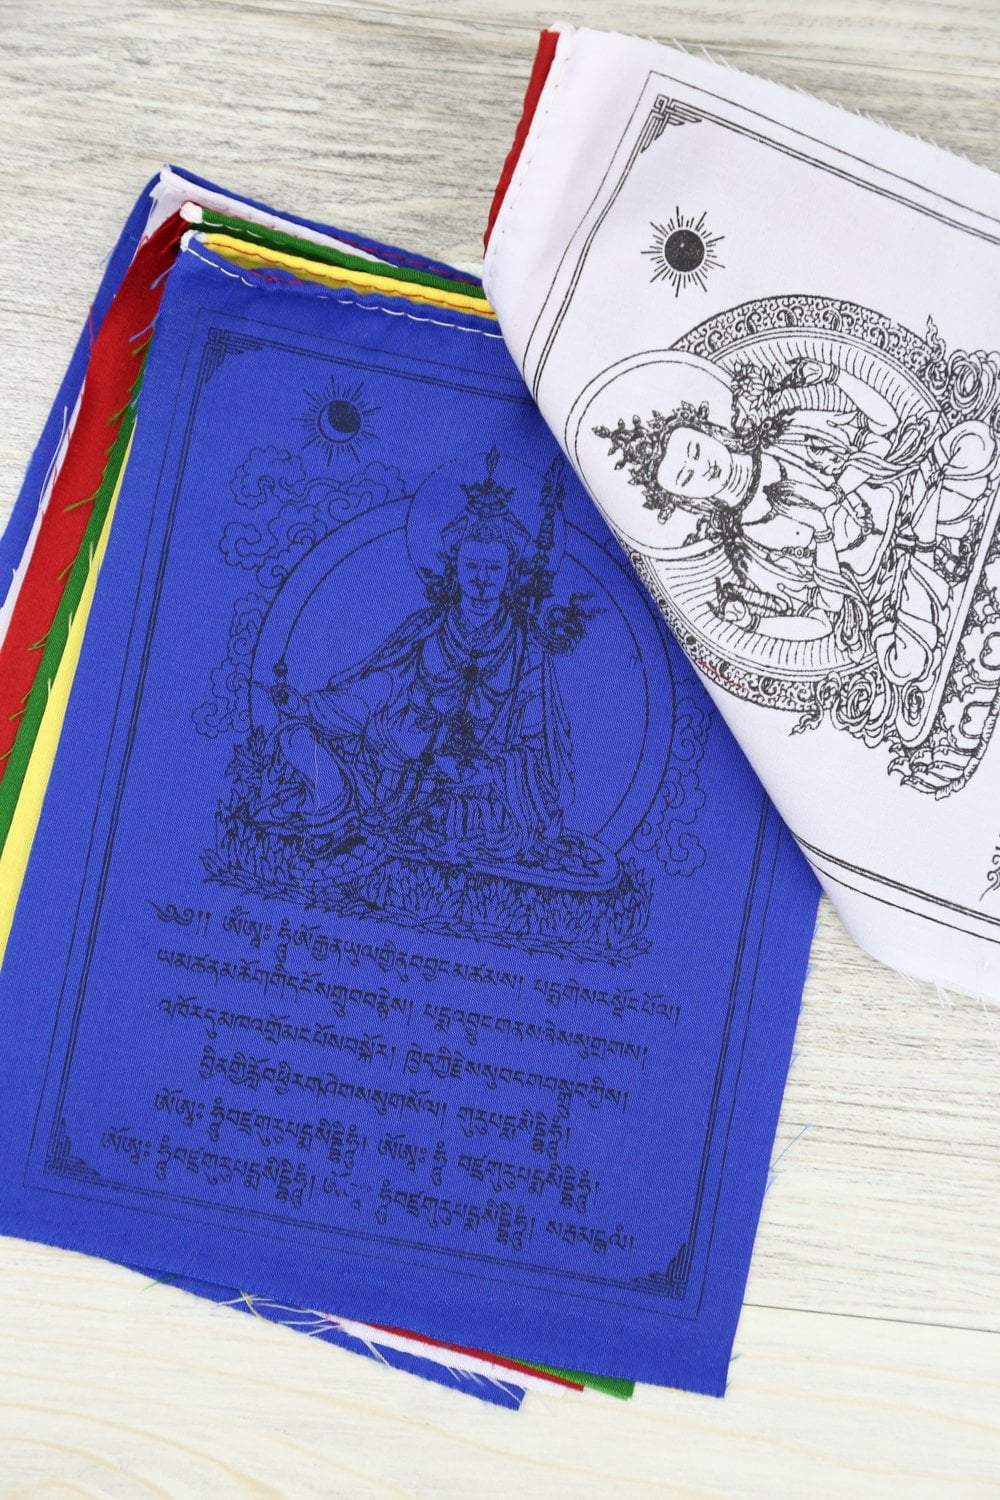 ༄༅།། ཨོཾ་ཨཱཿ ཧཱུྃ་ཨོ་རྒྱན་ཡུལ་གྱི་ནུབ་བྱང་མཚམས། པདྨ་གེ་སར་སྡོང་པོ་ལ།
ཡ་མཚན་མཆོག་གི་དངོས་གྲུབ་བརྙེས། པདྨ་འབྱུང་གནས་ཞེས་སུ་གྲགས།
འཁོར་དུ་མཁའ་འགྲོ་མང་པོས་བསྐོར། ཁྱེད་ཀྱི་རྗེས་སུ་བདག་བསྒྲུབ་ཀྱིས།
བྱིན་གྱི་རློབ་ཕྱིར་གཤེགས་སུ་གསོལ། གུ་རུ་པདྨ་སིདྡྷི་ཧཱུྃ།
ཨོཾ་ཨཱཿ ཧཱུྃ་བཛྲ་གུ་རུ་པདྨ་སིདྡྷི་ཧཱུྃ། ཨོཾ་ཨཱཿ ཧཱུྃ་ བཛྲ་གུ་རུ་པདྨ་སིདྡྷི་ཧཱུྃ།
ཨོཾ་ཨཱཿ ཧཱུྃ་བཛྲ་གུ་རུ་པདྨ་སིདྡྷི་ཧཱུྃ། ཧཱུྃ་བཛྲ་གུ་རུ་པདྨ་སིདྡྷི་ཧཱུྃ། སརྦ་མངྒ་ལཾ།